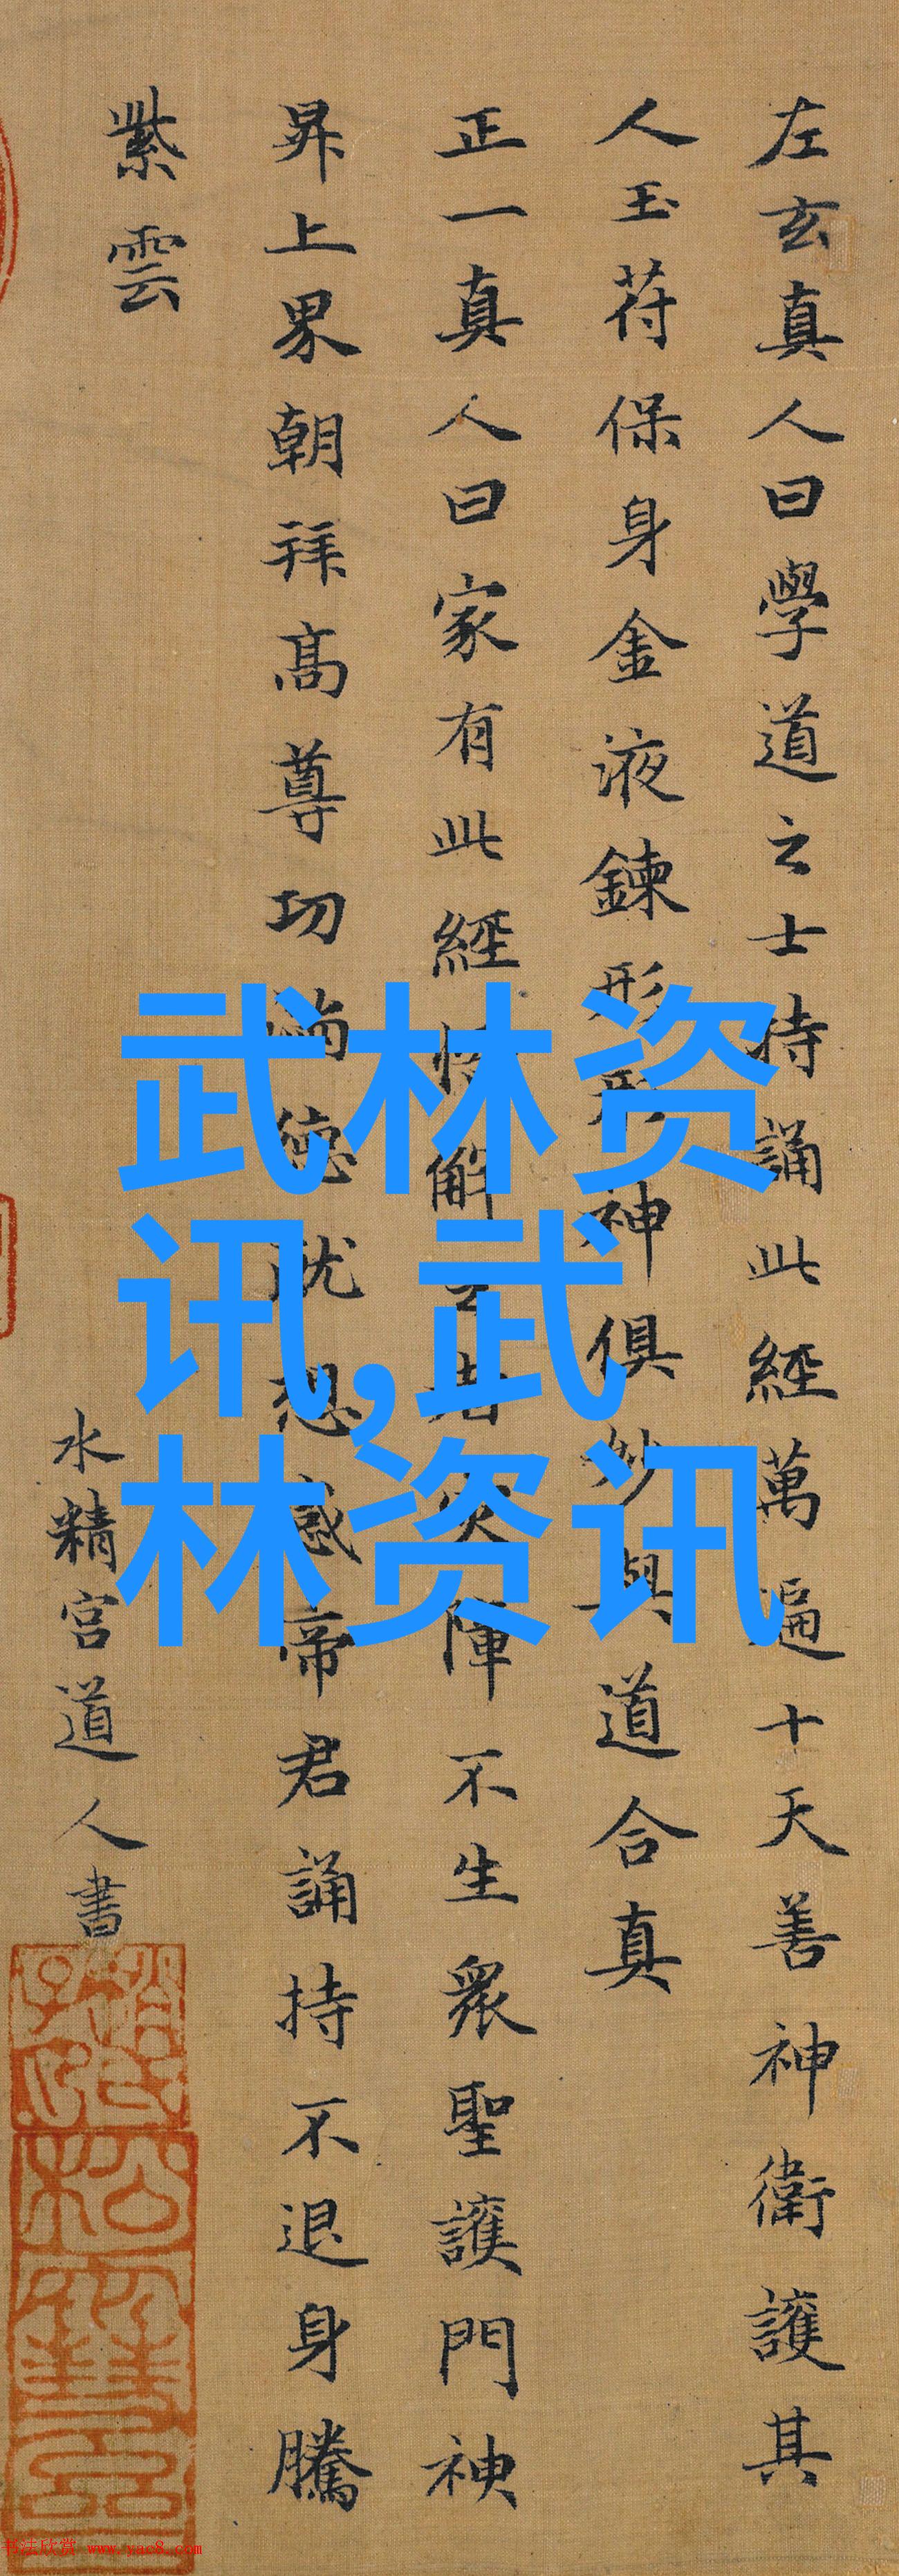 左玄真人曰學道之士持誦此經萬遍十天善神衛護其
人玉苻保身金液鍊形形神俱妙與道合真
正一真人曰家有此經悟解之者災障不生衆聖護門神
昇上界朝拜髙尊功滿德就想感帝君誦持不退身騰
紫雲
水精宮道人書
武林资
讯,武
林资讯
书法欣赏 www.yac8.com